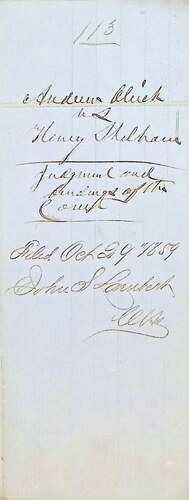 113
Andrew Uirk
vs
Henry Shelhase
Judgment and
findings of the
Court
Filed Oct 29 1859
John S Lambert
Clk